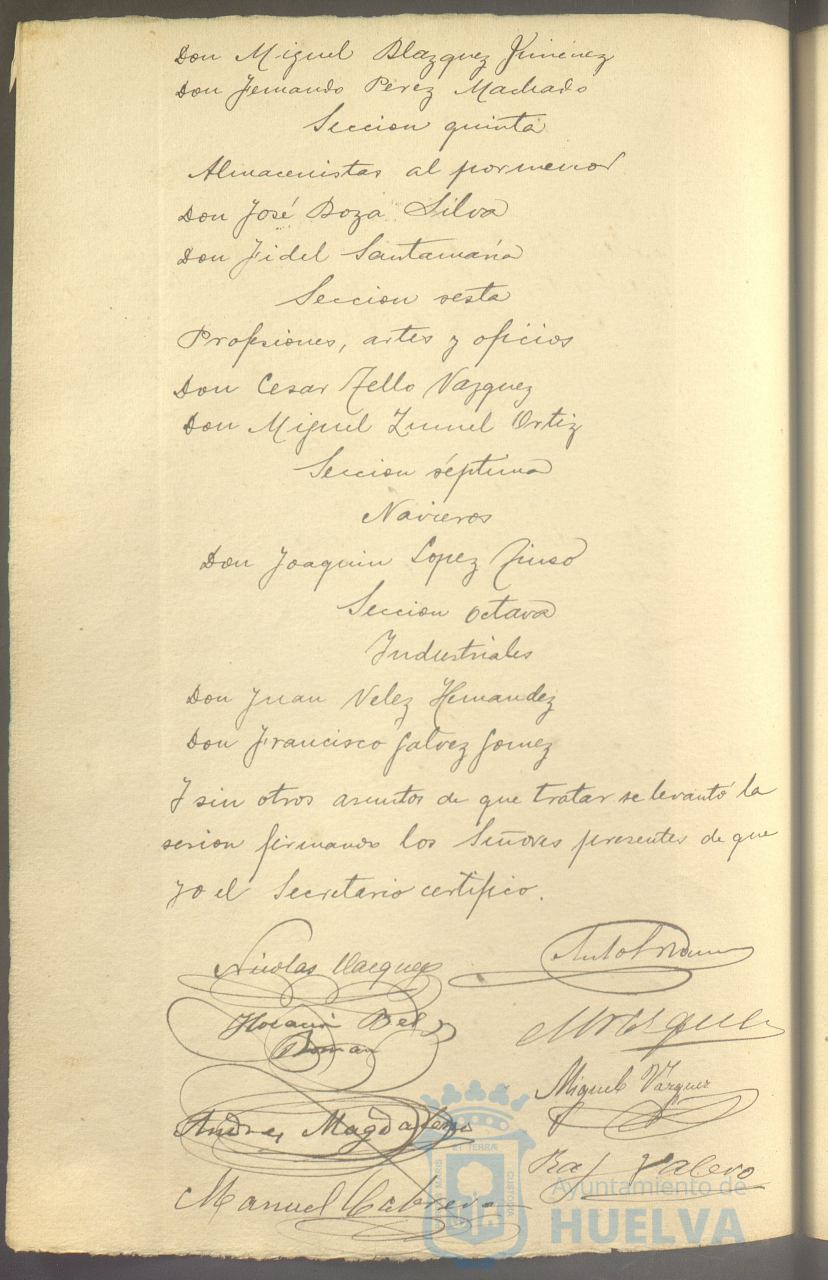 Don Miguel Blazquez Jimenez
Don Fernando Perez Machado
Seccion quinta
Almacenistas al pormenor
Don José Boza Silva
Don Fidel Santamaria
Seccion sesta
Profesiones, artes y oficios
Don Cesar Tello Vazquez
Don Miguel Zunel Ortiz
Seccion séptima
Navieros
Don Joaquin Lopez
Seccion octava
Industriales
Don Juan Velez Hernandez
Don Francisco Galvez Gomez
Y sin otros asuntos de que tratar se levantó la
sesion firmando los Señores presentes de que
yo el Secretario certifico.
Nicolas Vazquez
Horacio Bel
Roman
Miguel Vázquez
Andres Magdaleno
Raf Valero
Manuel Cabrera
ET TERRÆ
MARIS
CUSTODIA
Ayuntamiento de
HUELVA